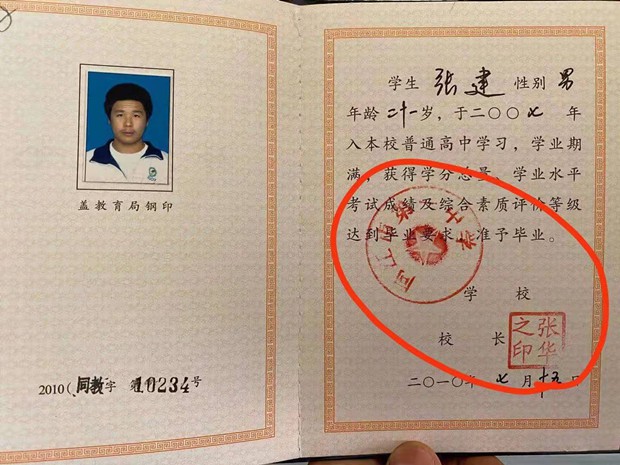 盖教育局钢印
2010(同教字 第 10234号
学生 张建 性别 男
年龄 二十一 岁，于二〇〇七 年
入本校普通高中学习，学业期
满，获得学分总量、学业水平
考试成绩及综合素质评价等级
达到毕业要求，准予毕业。
同江市第一中学
学 校
校 长
张华之印
二〇一〇年 七 月 十五 日